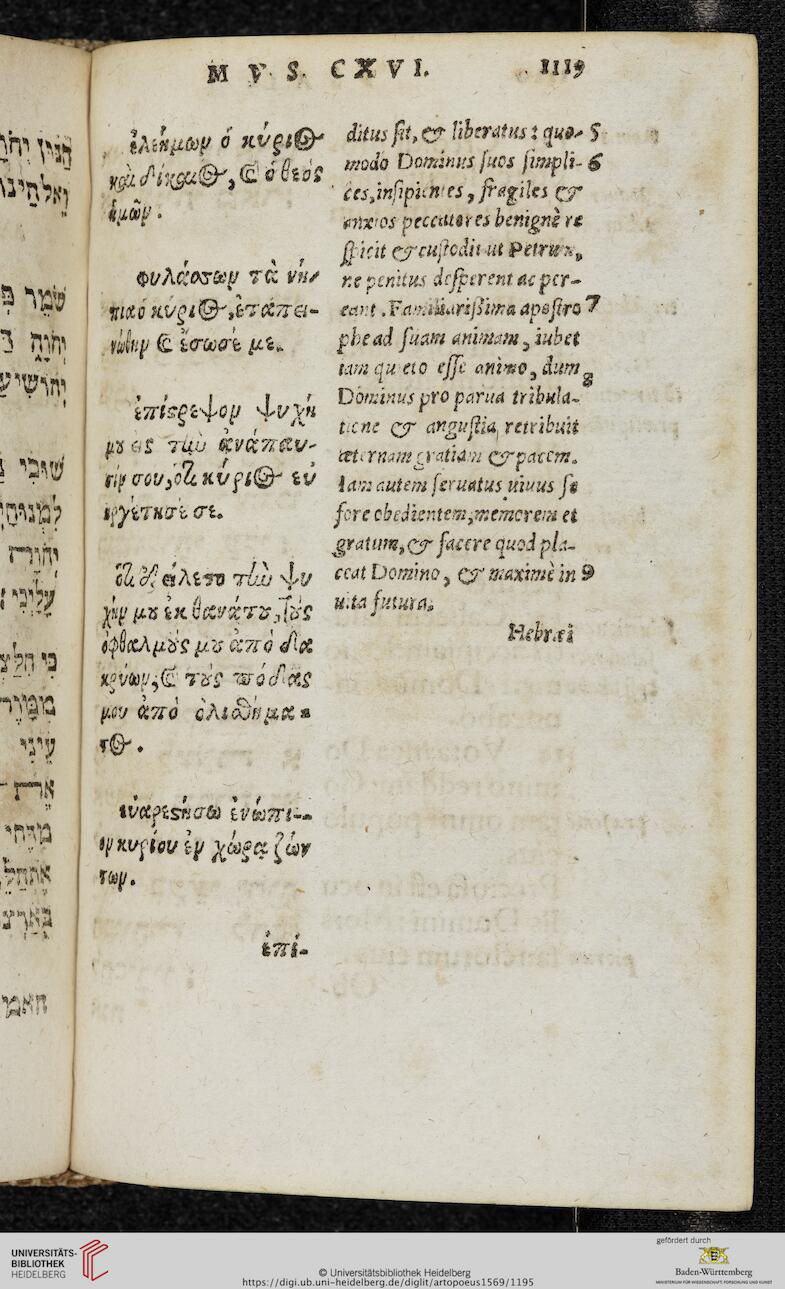 MVS. CXVI. 1119
ἐλεήμων ὁ κύριος
καὶ δίκαιος, καὶ ὁ θεὸς
ἡμῶν.
φυλάσσων τὰ νή-
πια ὁ κύριος, ἐταπει-
νώθην καὶ ἔσωσέ με.
ἐπίστρεψον ψυχή
μου εἰς τὴν ἀνάπαυ-
σίν σου, ὅτι κύριος εὐ
ηργέτησέ σε.
ὅτι ἐξείλετο τὴν ψυ
χήν μου ἐκ θανάτου, τοὺς
ὀφθαλμούς μου ἀπὸ δα
κρύων, καὶ τοὺς πόδας
μου ἀπὸ ὀλισθήμα-
τος.
εὐαρεστήσω ἐνώπι-
ον κυρίου ἐν χώρᾳ ζών
των.
ἐπί-
ditus sit, & liberatus: quo- 5
modo Dominus suos simpli- 6
ces, insipientes, fragiles &
anxios peccatores benignè re
spicit & custodit ut Petrum,
ne penitus desperent ac per-
eant. Familiarißima apostro 7
phe ad suam animam, iubet
iam quieto esse animo, dum 8
Dominus pro parua tribula-
tione & angustia, retribuit
æternam gratiam & pacem.
Iam autem seruatus uiuus se
fore obedientem, memorem et
gratum, & facere quod pla-
ceat Domino, & maximè in 9
uita futura.
Hebræi
שֹׁמֵר
יְהוָֹה
שׁוּבִי
עָלָיְכִי
עֵינִי
UNIVERSITÄTS-
BIBLIOTHEK
HEIDELBERG
© Universitätsbibliothek Heidelberg
https://digi.ub.uni-heidelberg.de/diglit/artopoeus1569/1195
gefördert durch
Baden-Württemberg
MINISTERIUM FÜR WISSENSCHAFT, FORSCHUNG UND KUNST